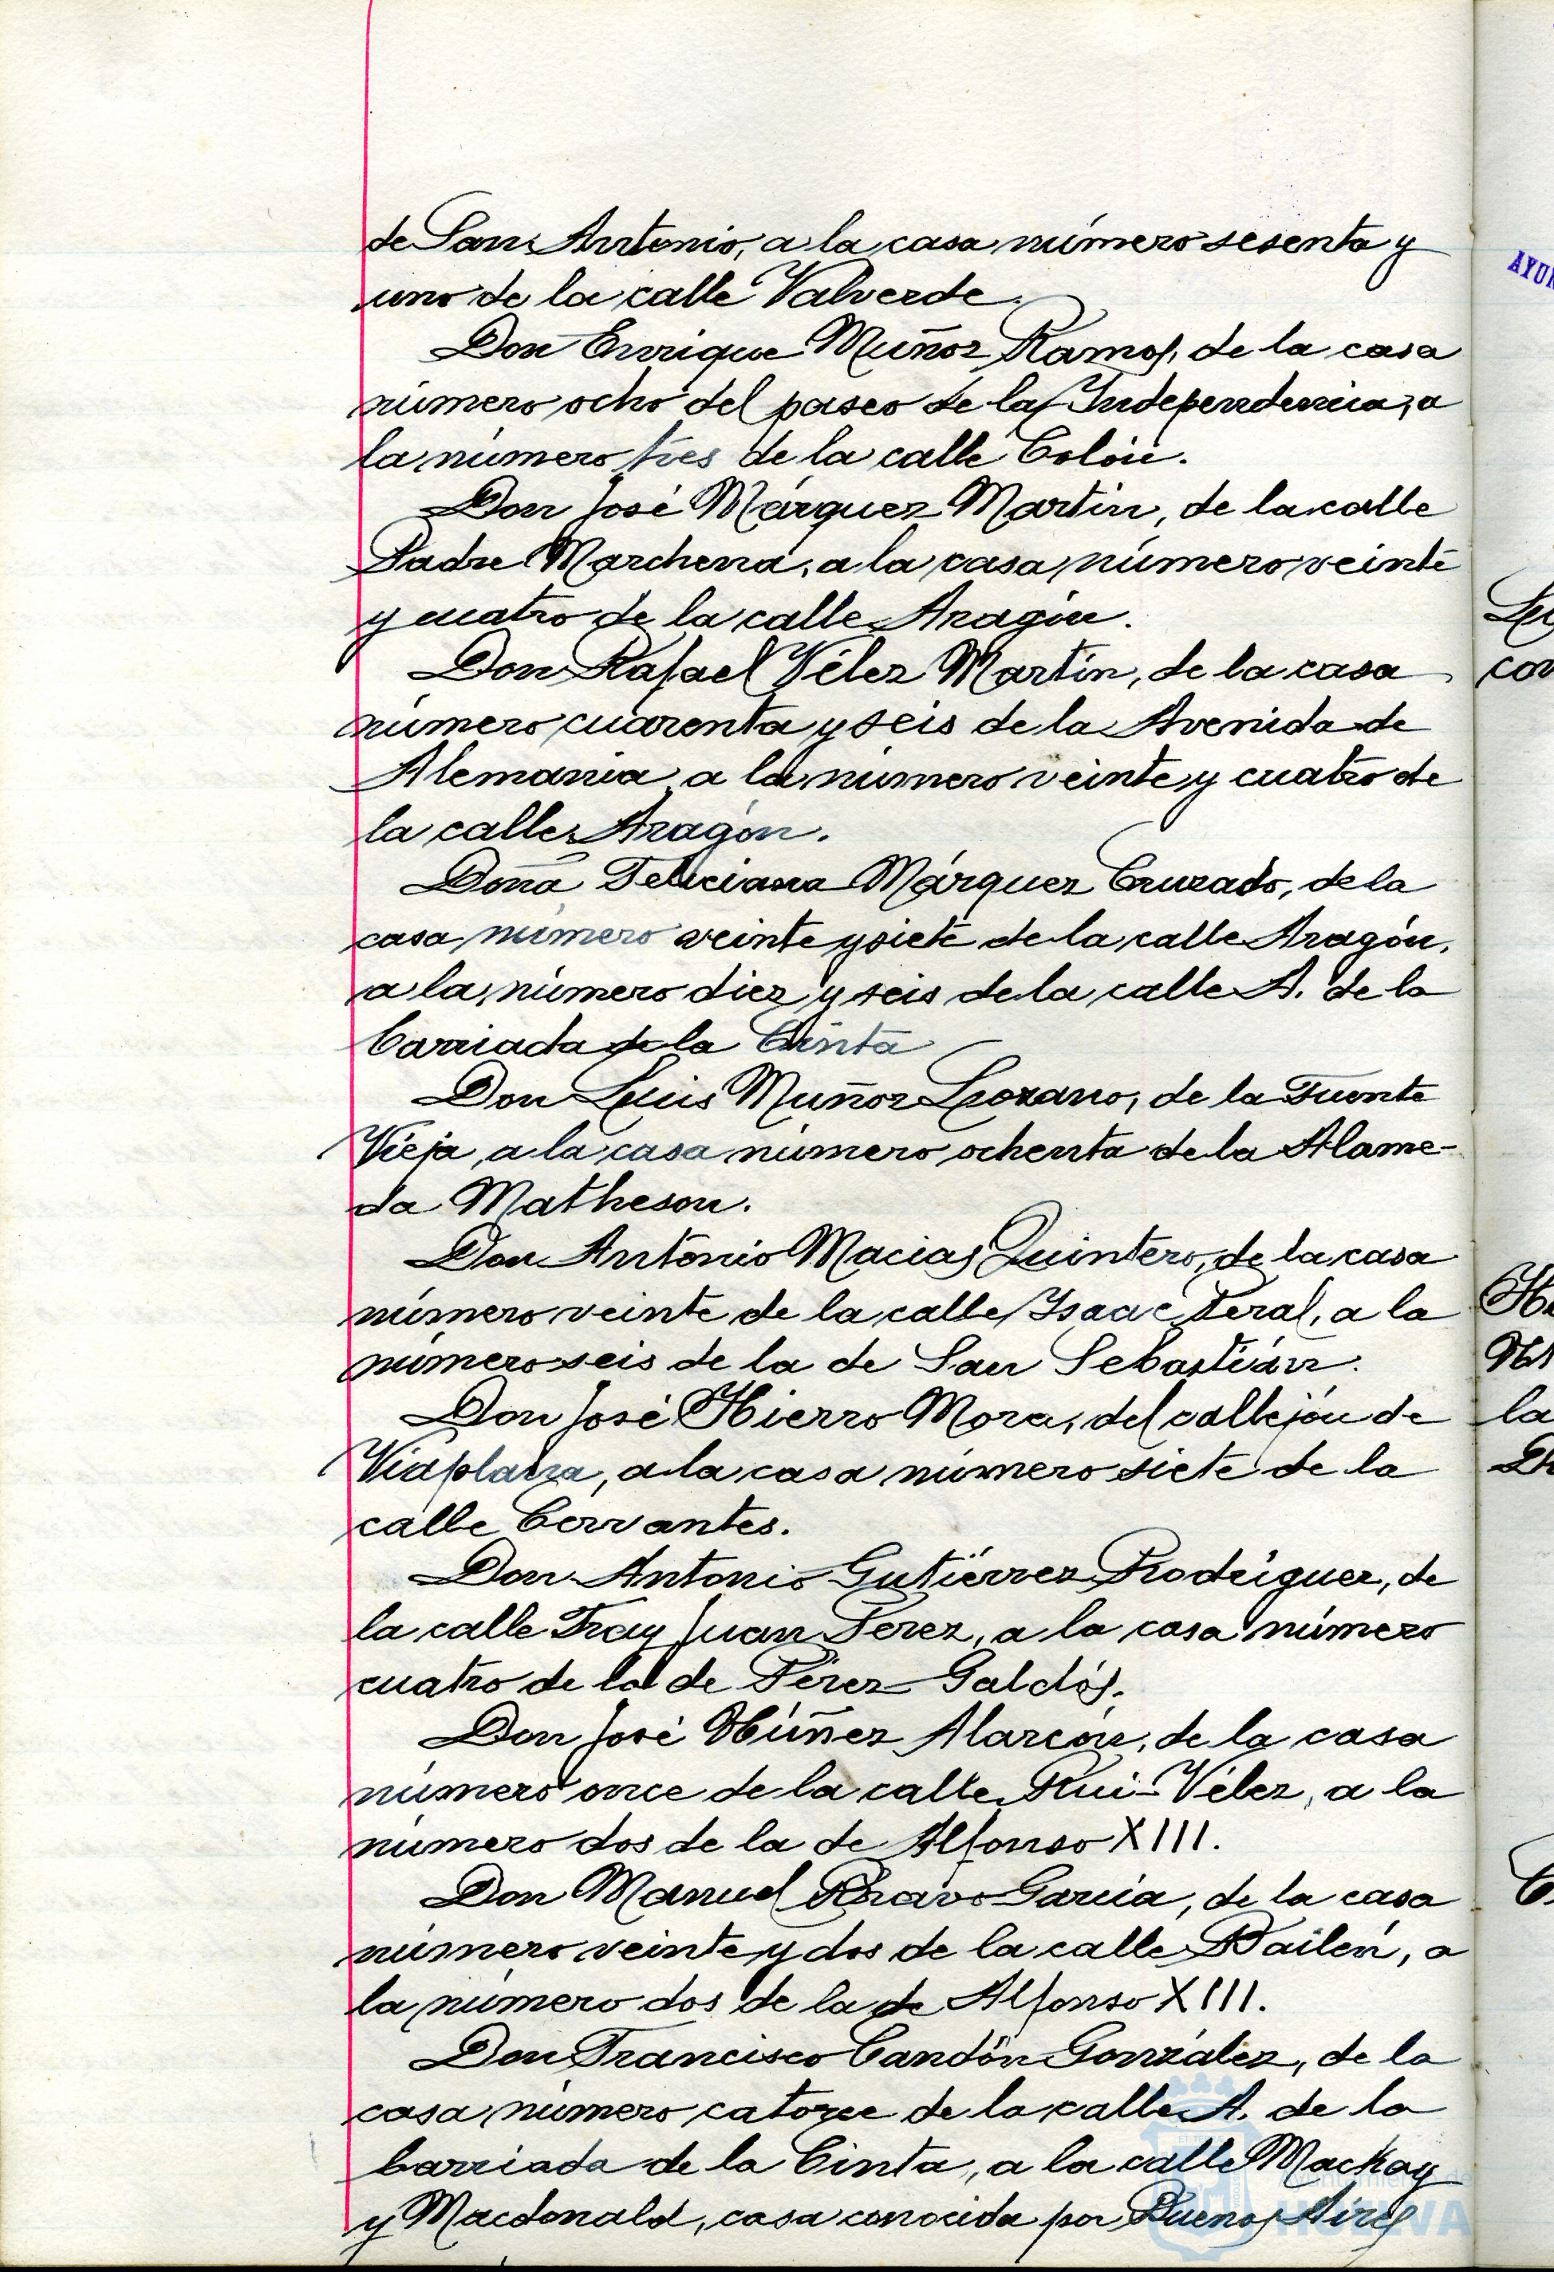 de San Antonio, a la casa número sesenta y
uno de la calle Valverde.
Don Enrique Muñoz Ramos, de la casa
número ocho del paseo de la Independencia, a
la número tres de la calle Colón.
Don José Márquez Martin, de la calle
Padre Marchena, a la casa número veinte
y cuatro de la calle Aragón.
Don Rafael Vélez Martín, de la casa
número cuarenta y seis de la Avenida de
Alemania a la número veinte y cuatro de
la calle Aragón.
Doña Feliciana Márquez Cruzado, de la
casa número veinte y siete de la calle Aragón,
a la número diez y seis de la calle A. de la
barriada de la Cinta
Don Luis Muñoz Lozano, de la Fuente
Vieja, a la casa número ochenta de la Alame-
da Matheson.
Don Antonio Macias Quintero, de la casa
número veinte de la calle Isaac Peral, a la
número seis de la de San Sebastián.
Don José Hierro Mora, del callejón de
Viaplana, a la casa número siete de la
calle Cervantes.
Don Antonio Gutiérrez Rodríguez, de
la calle Fray Juan Perez, a la casa número
cuatro de la de Pérez Galdós.
Don José Núñez Alarcón, de la casa
número once de la calle Rui-Vélez, a la
número dos de la de Alfonso XIII.
Don Manuel Bravo García, de la casa
número veinte y dos de la calle Bailén, a
la número dos de la de Alfonso XIII.
Don Francisco Candón González, de la
casa número catorce de la calle A. de la
barriada de la Cinta, a la calle Mackay
y Macdonald, casa conocida por Buenos Aires
AYU
con
la
Ayuntamiento de
HUELVA